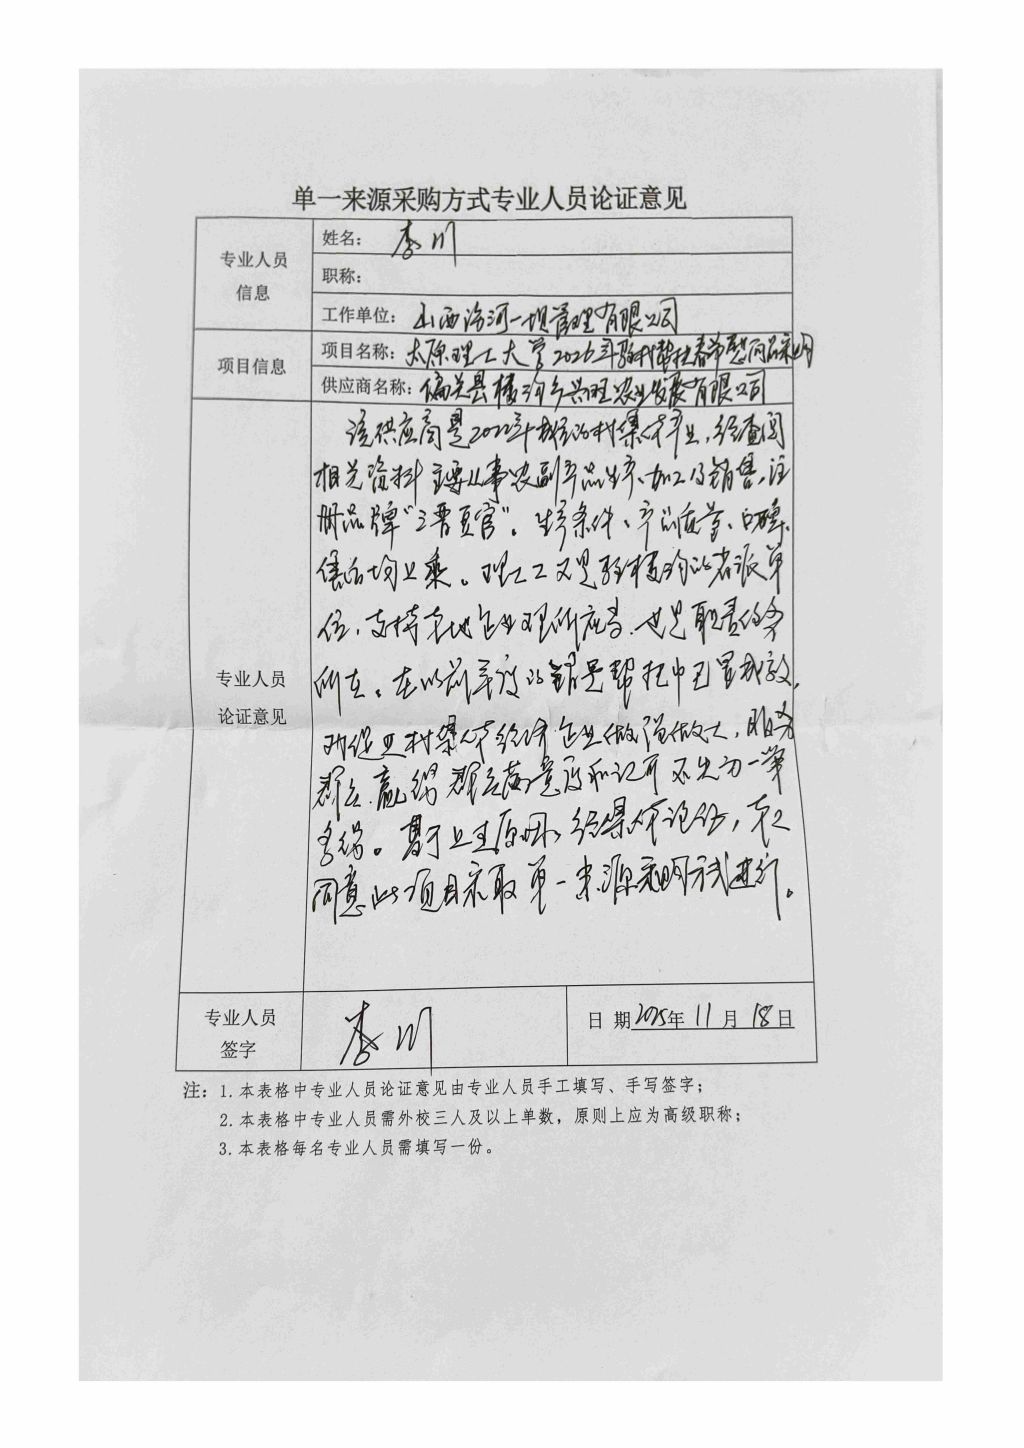 单一来源采购方式专业人员论证意见
专业人员
信息
姓名: 李川
职称:
工作单位: 山西汾河一坝管理有限公司
项目信息
项目名称: 太原理工大学2026年驻村帮扶春节慰问品采购
供应商名称: 偏关县楼沟乡兴旺农业发展有限公司
专业人员
论证意见
该供应商是2022年成立的村集体产业,经查阅
相关资料主要从事农副产品生产、加工及销售,注
册品牌“三晋贡官”。生产条件、产品质量、口碑、
售后均上乘。理工又是驻楼沟的省派单
位,支持本地企业理所应当,也是职责任务
所在。在以前年度的销售帮扶中已显成效,
对促进村集体经济企业做强做大,服务
群众,赢得群众满意度和认可不失为一举
多得。基于上述原因,经集体论证,本人
同意此项目采取单一来源采购方式进行。
专业人员
签字
李川
日 期2025年 11 月 18日
注: 1.本表格中专业人员论证意见由专业人员手工填写、手写签字;
2.本表格中专业人员需外校三人及以上单数,原则上应为高级职称;
3.本表格每名专业人员需填写一份。